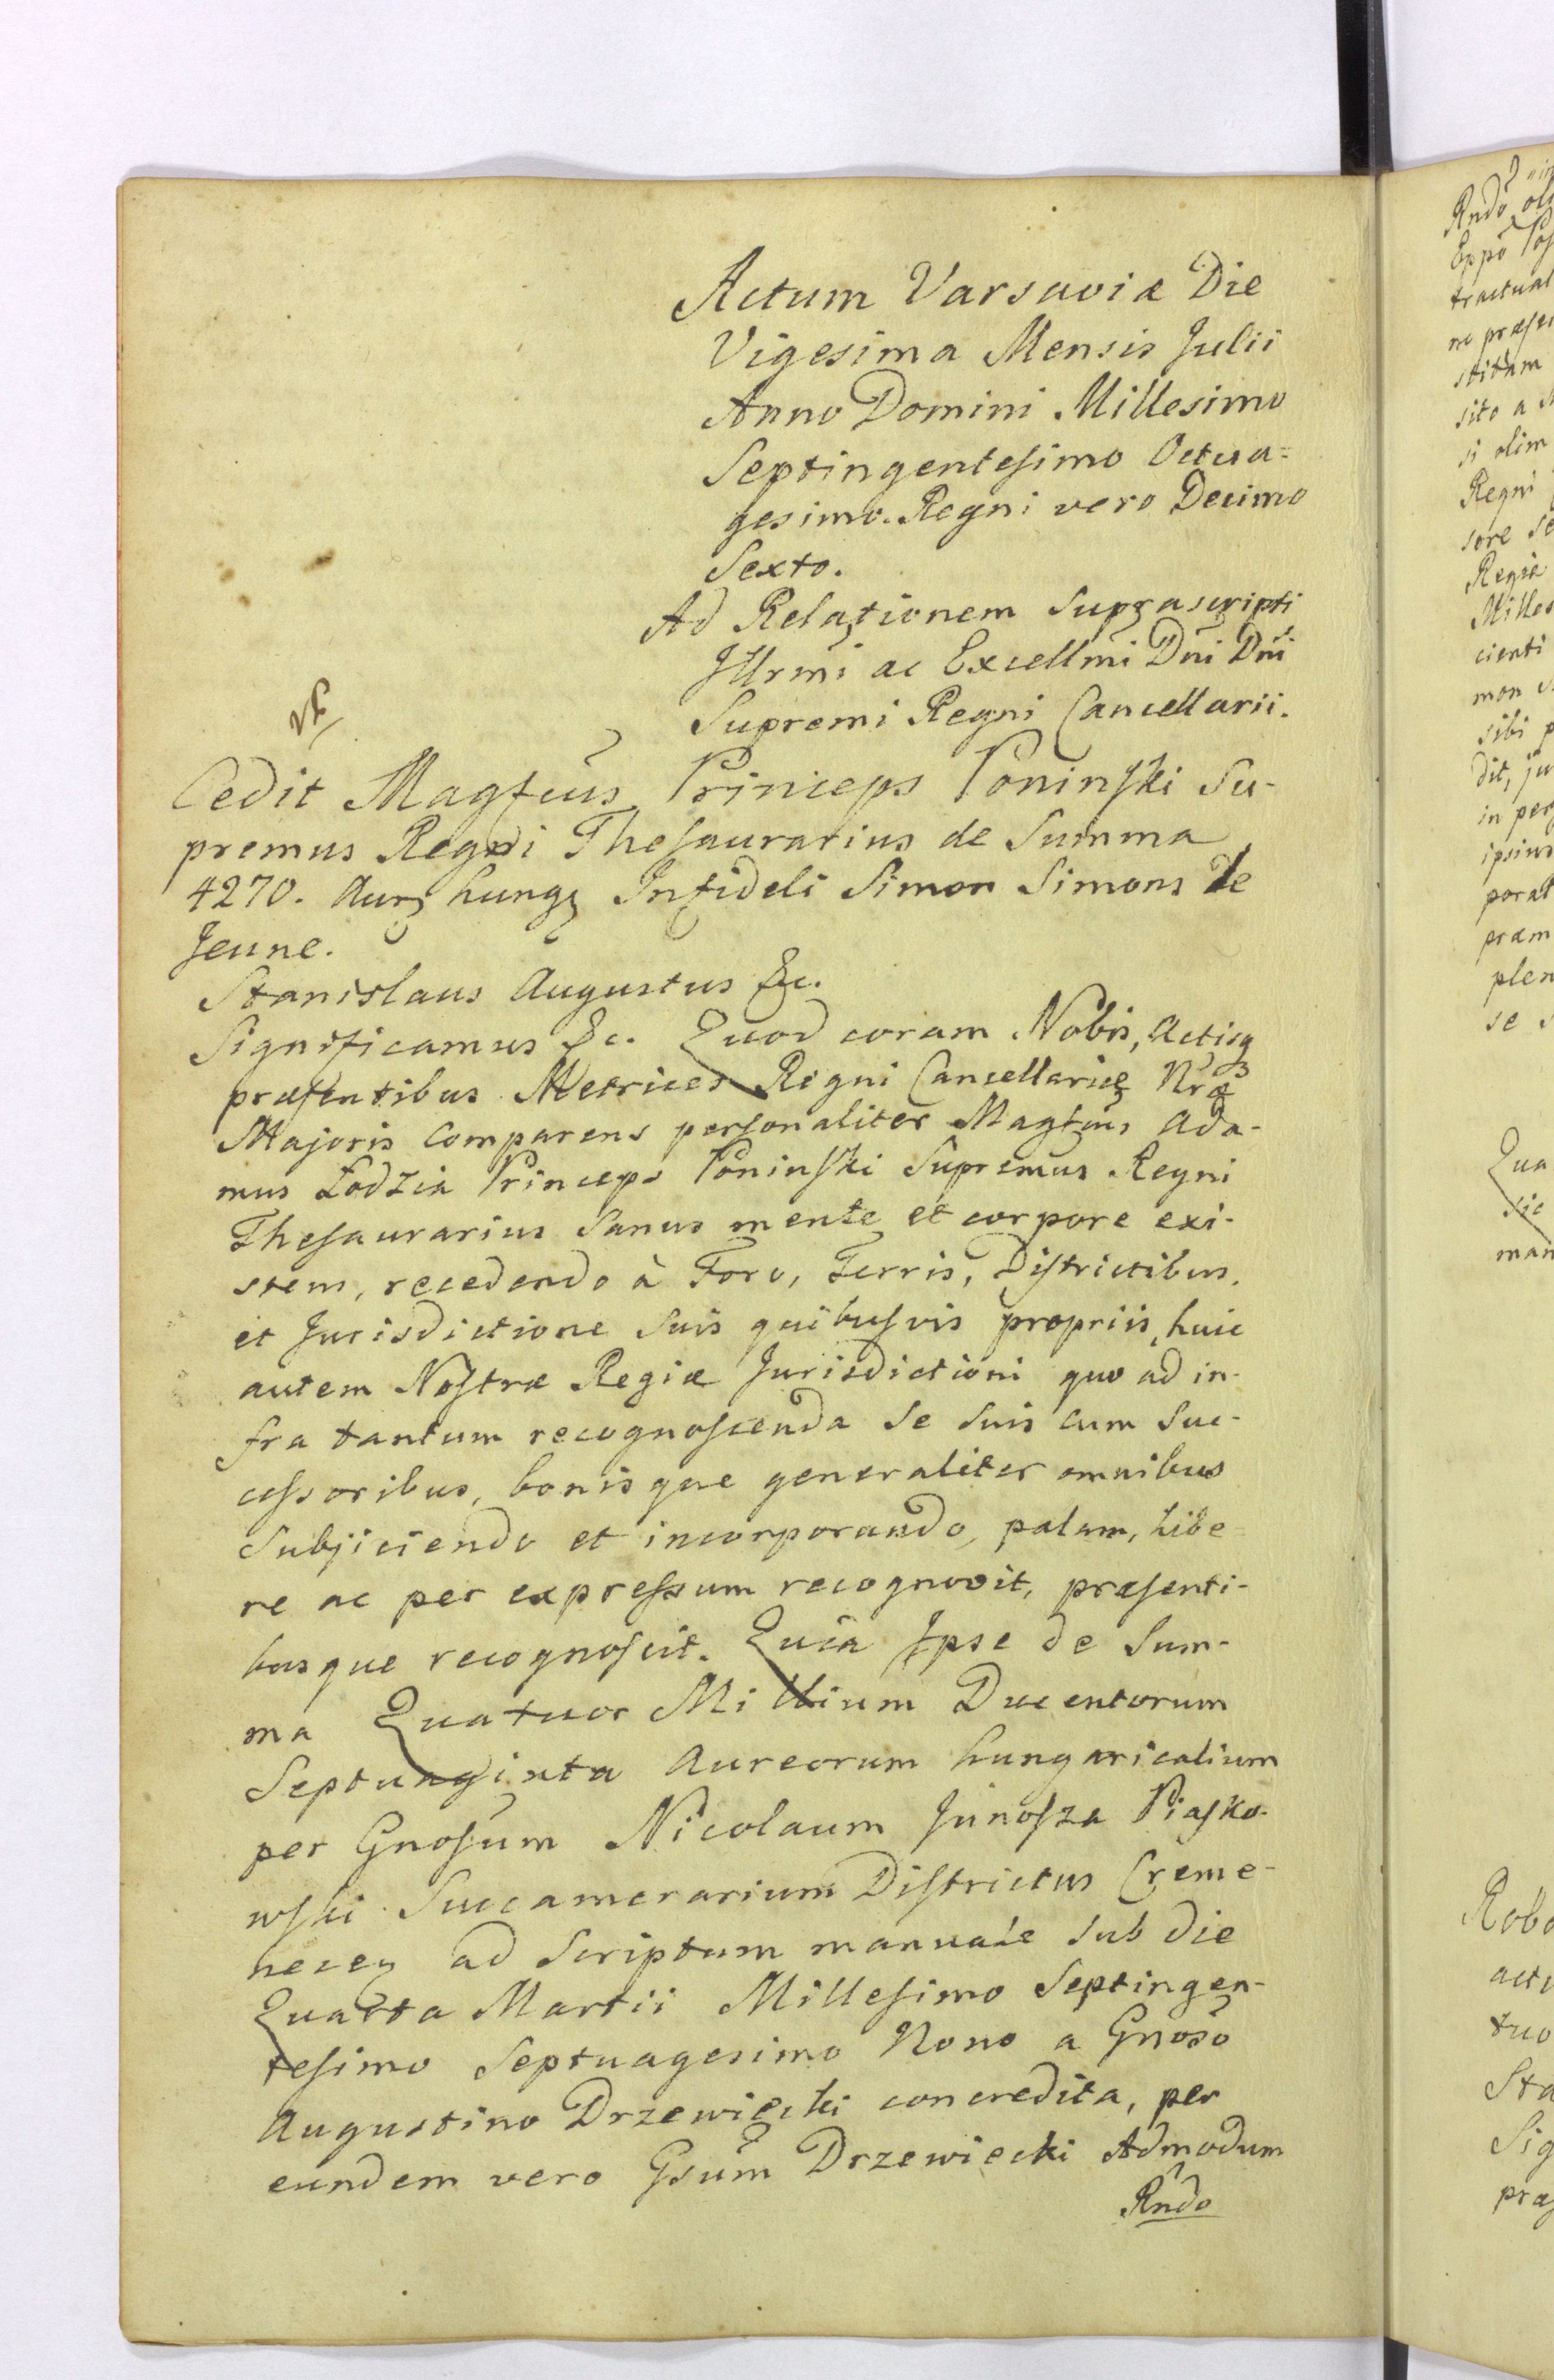 Actum Varsaviæ Die
Vigesima Mensis Julii
Anno Domini Millesimo
Septingentesimo Octua=
gesimo. Regni vero Decimo
Sexto.
Ad Relationem Suprascripti
Jllrmi ac Excellmi Dni Dni
Supremi Regni Cancellarii.
Cedit Magfcus Princeps Poninski Su-
premus Regni Thesaurarius de Summa
4270. Aur hung Infideli Simon Simons le
Jeune.
Stanislaus Augustus &c.
Significamus &c. Quod coram Nobis, Actisq
præsentibus Metrices Regni Cancellariæ Nræ
Majoris Comparens personaliter Magfcus Ada-
mus Łodzia Princeps Poninski Supremus Regni
Thesaurarius Sanus mente et corpore exi-
stens, recedendo à Foro, Terris, Districtibus,
et Jurisdictione Suis quibusvis propriis, huic
autem Nostræ Regiæ Jurisdictioni quo ad in-
fra tantum recognoscenda Se Suis cum Suc-
cessoribus, bonisque generaliter omnibus
Subjiciendo et incorporando, palam, libe-
re ac per expressum recognovit, præsenti-
busque recognoscit. Quia Ipse de Sum-
ma Quatuor Millium Ducentorum
Septuaginta Aureorum hungaricalium
per Gnosum Nicolaum Junosza Piasko-
wski Succamerarium Districtus Creme-
necen ad Scriptum manuale Sub die
Quarta Martii Millesimo Septingen-
tesimo Septuagesimo Nono a Gnoso
Augustino Drzewiecki concredita, per
eundem vero Gsum Drzewiecki Admodum
Rndo
Rndo
Eppo
tractual
ne præsen
stitam
sito a
si olim
Regni
sore Se
Regiæ
Milles
cienti
mon
sibi
dit, ju
in per
ipsius
porat
præm
plen
se
Qua
sic
man
Robo
actu
tuo
Sta
Sig
præs